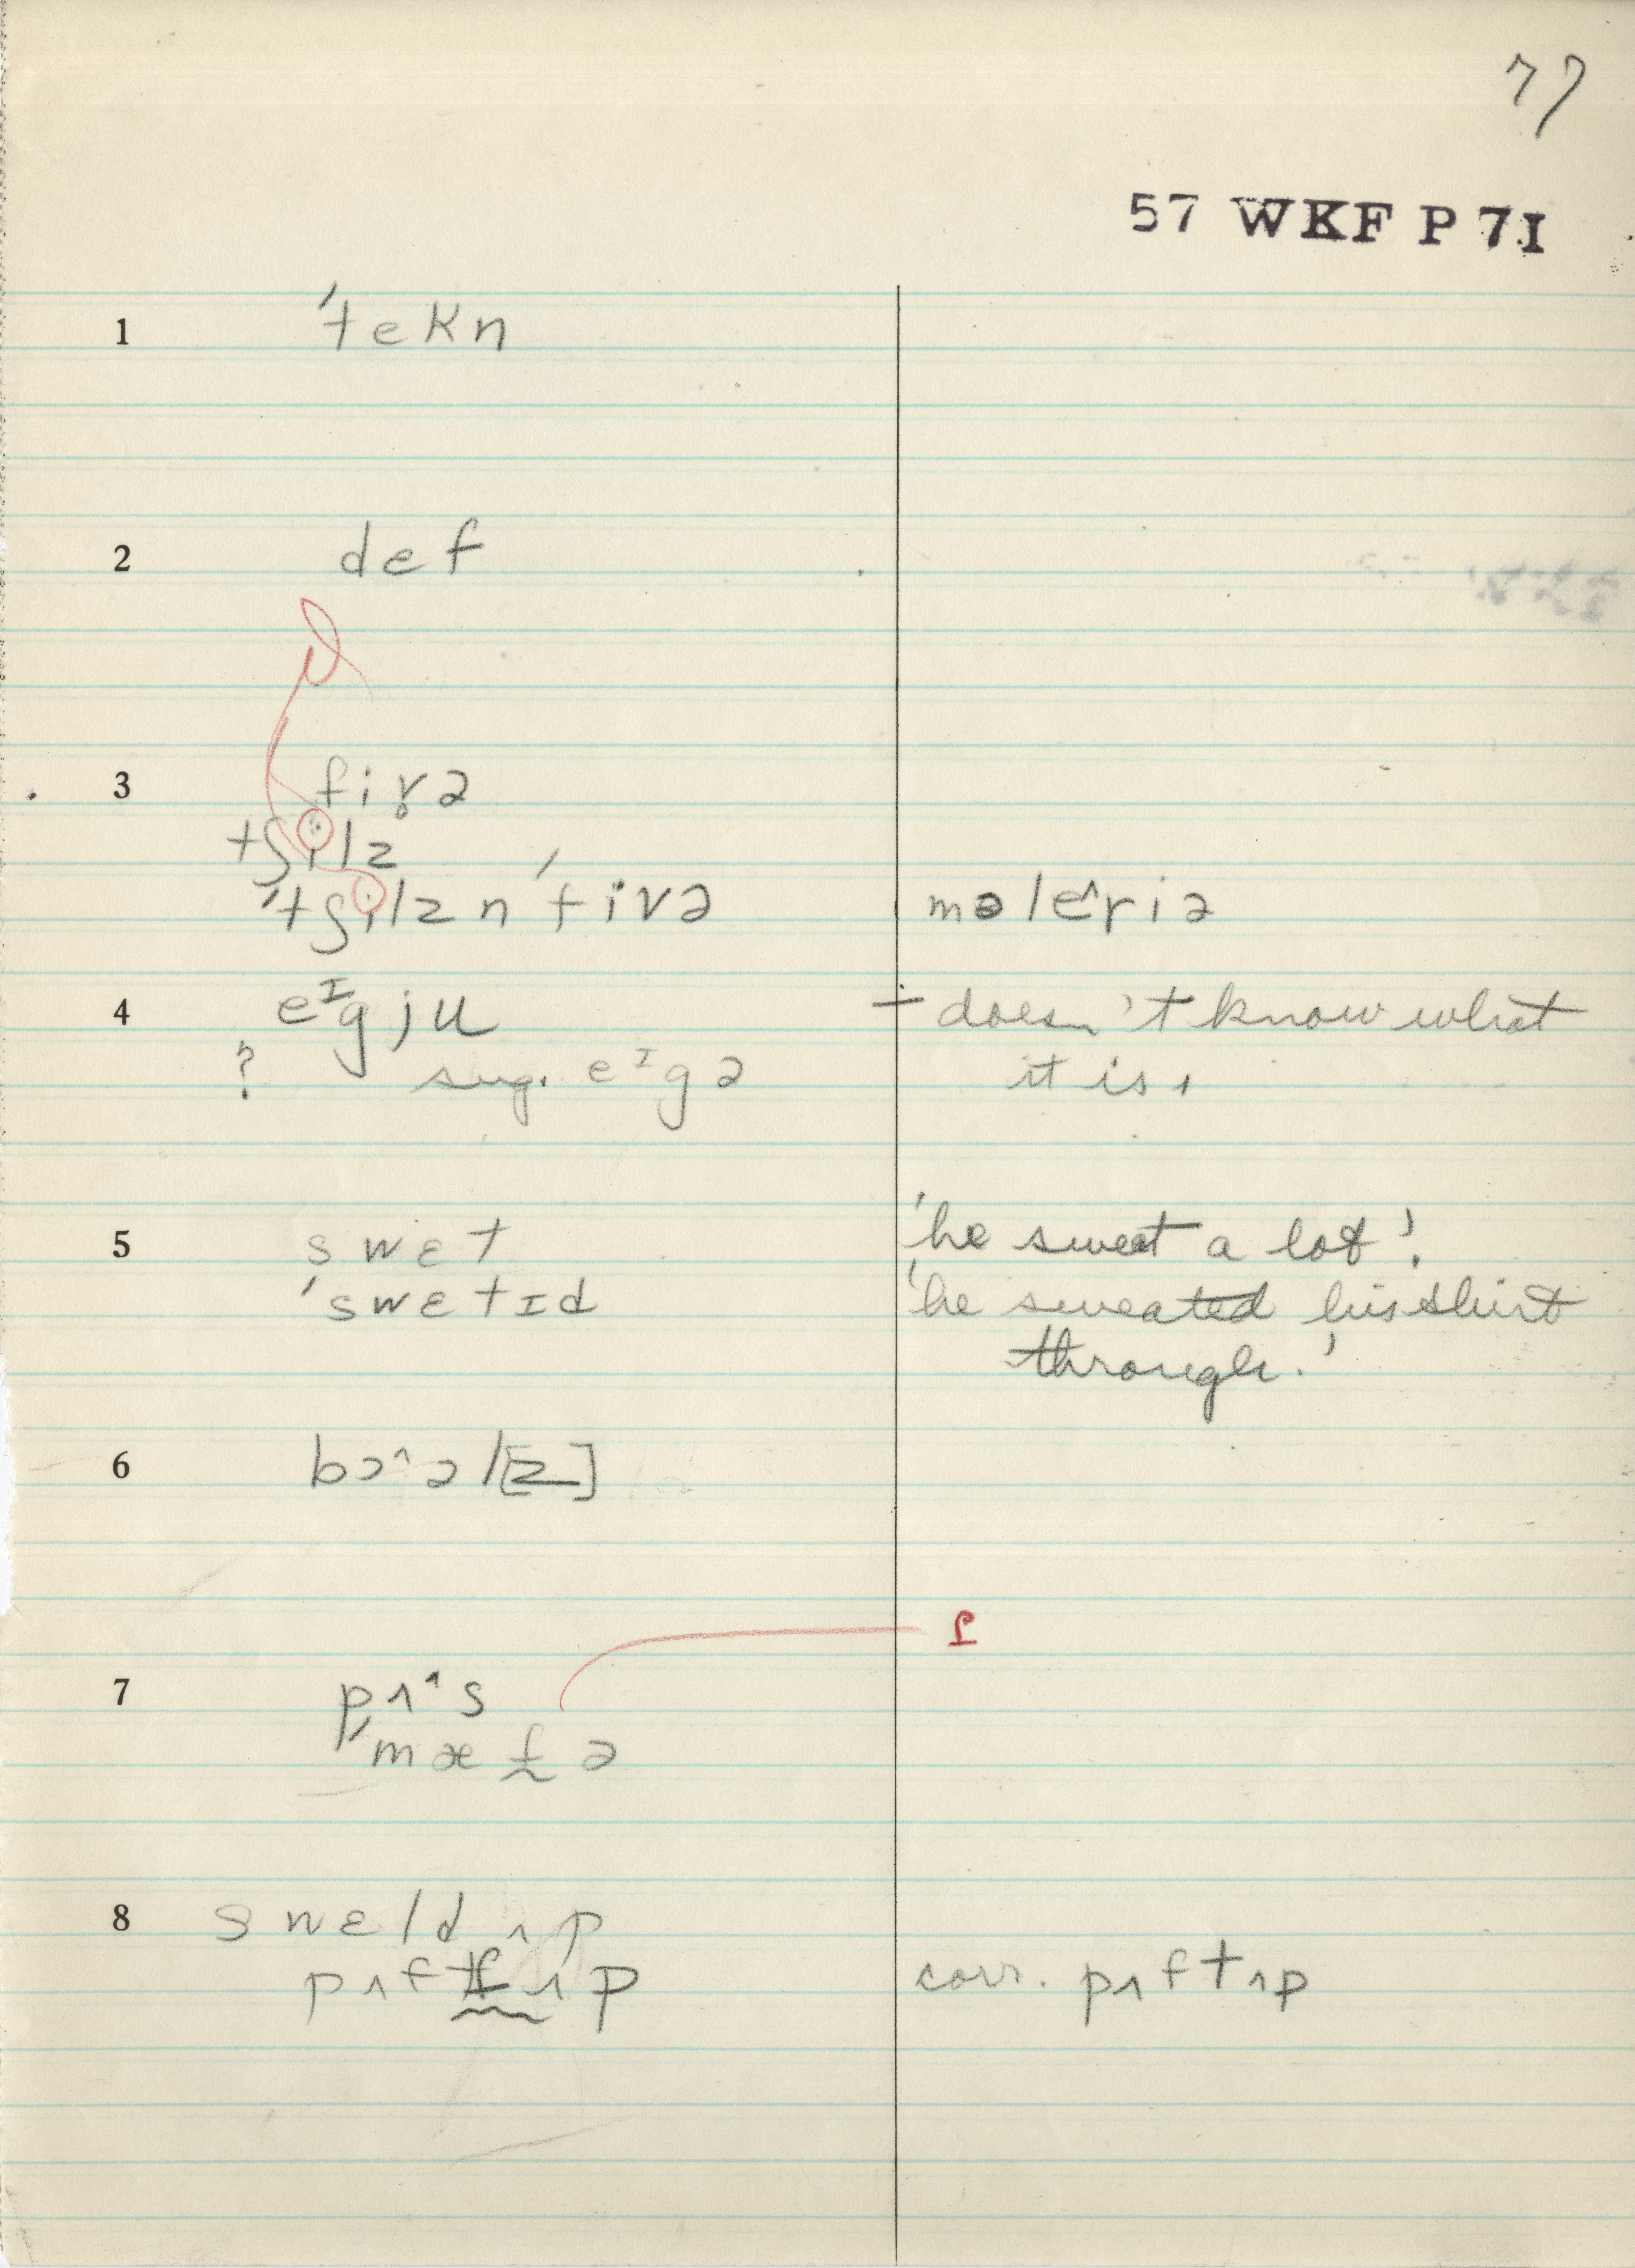 77
57 WKF P 7I
1 ˈtekn
2 def
3 fivə
tʃilz
ˈtʃilz n ˈfivə məleˆriə
4 eᴵgju – doesn't know what
? sug. eᴵgə it is.
5 swɛt 'he sweat a lot'.
ˈswɛtɪd 'he sweated his shirt
through.'
6 bɔˆəl[z]
7 pʌˆs
ˈmæfə
8 swɛld ʌp
pʌf ʌp corr. pʌftʌp